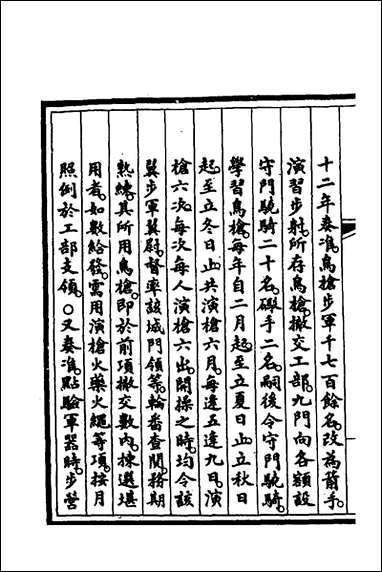 十二年奏准鳥槍步軍千七百餘名改為箭手
演習步射所存鳥槍撤交工部九門向各額設
守門驍騎二十名礮手二名嗣後令守門驍騎
學習鳥槍每年自二月起至立夏日止立秋日
起至立冬日止共演槍六月每逢五逢九日演
槍六次每次每人演槍六出開操之時均令該
翼步軍翼尉督率該城門領等輪番查閱務期
熟練其所用鳥槍即於前項撤交數內揀選堪
用者如數給發需用演槍火藥火繩等項按月
照例於工部支領○又奏准點驗軍器時步營